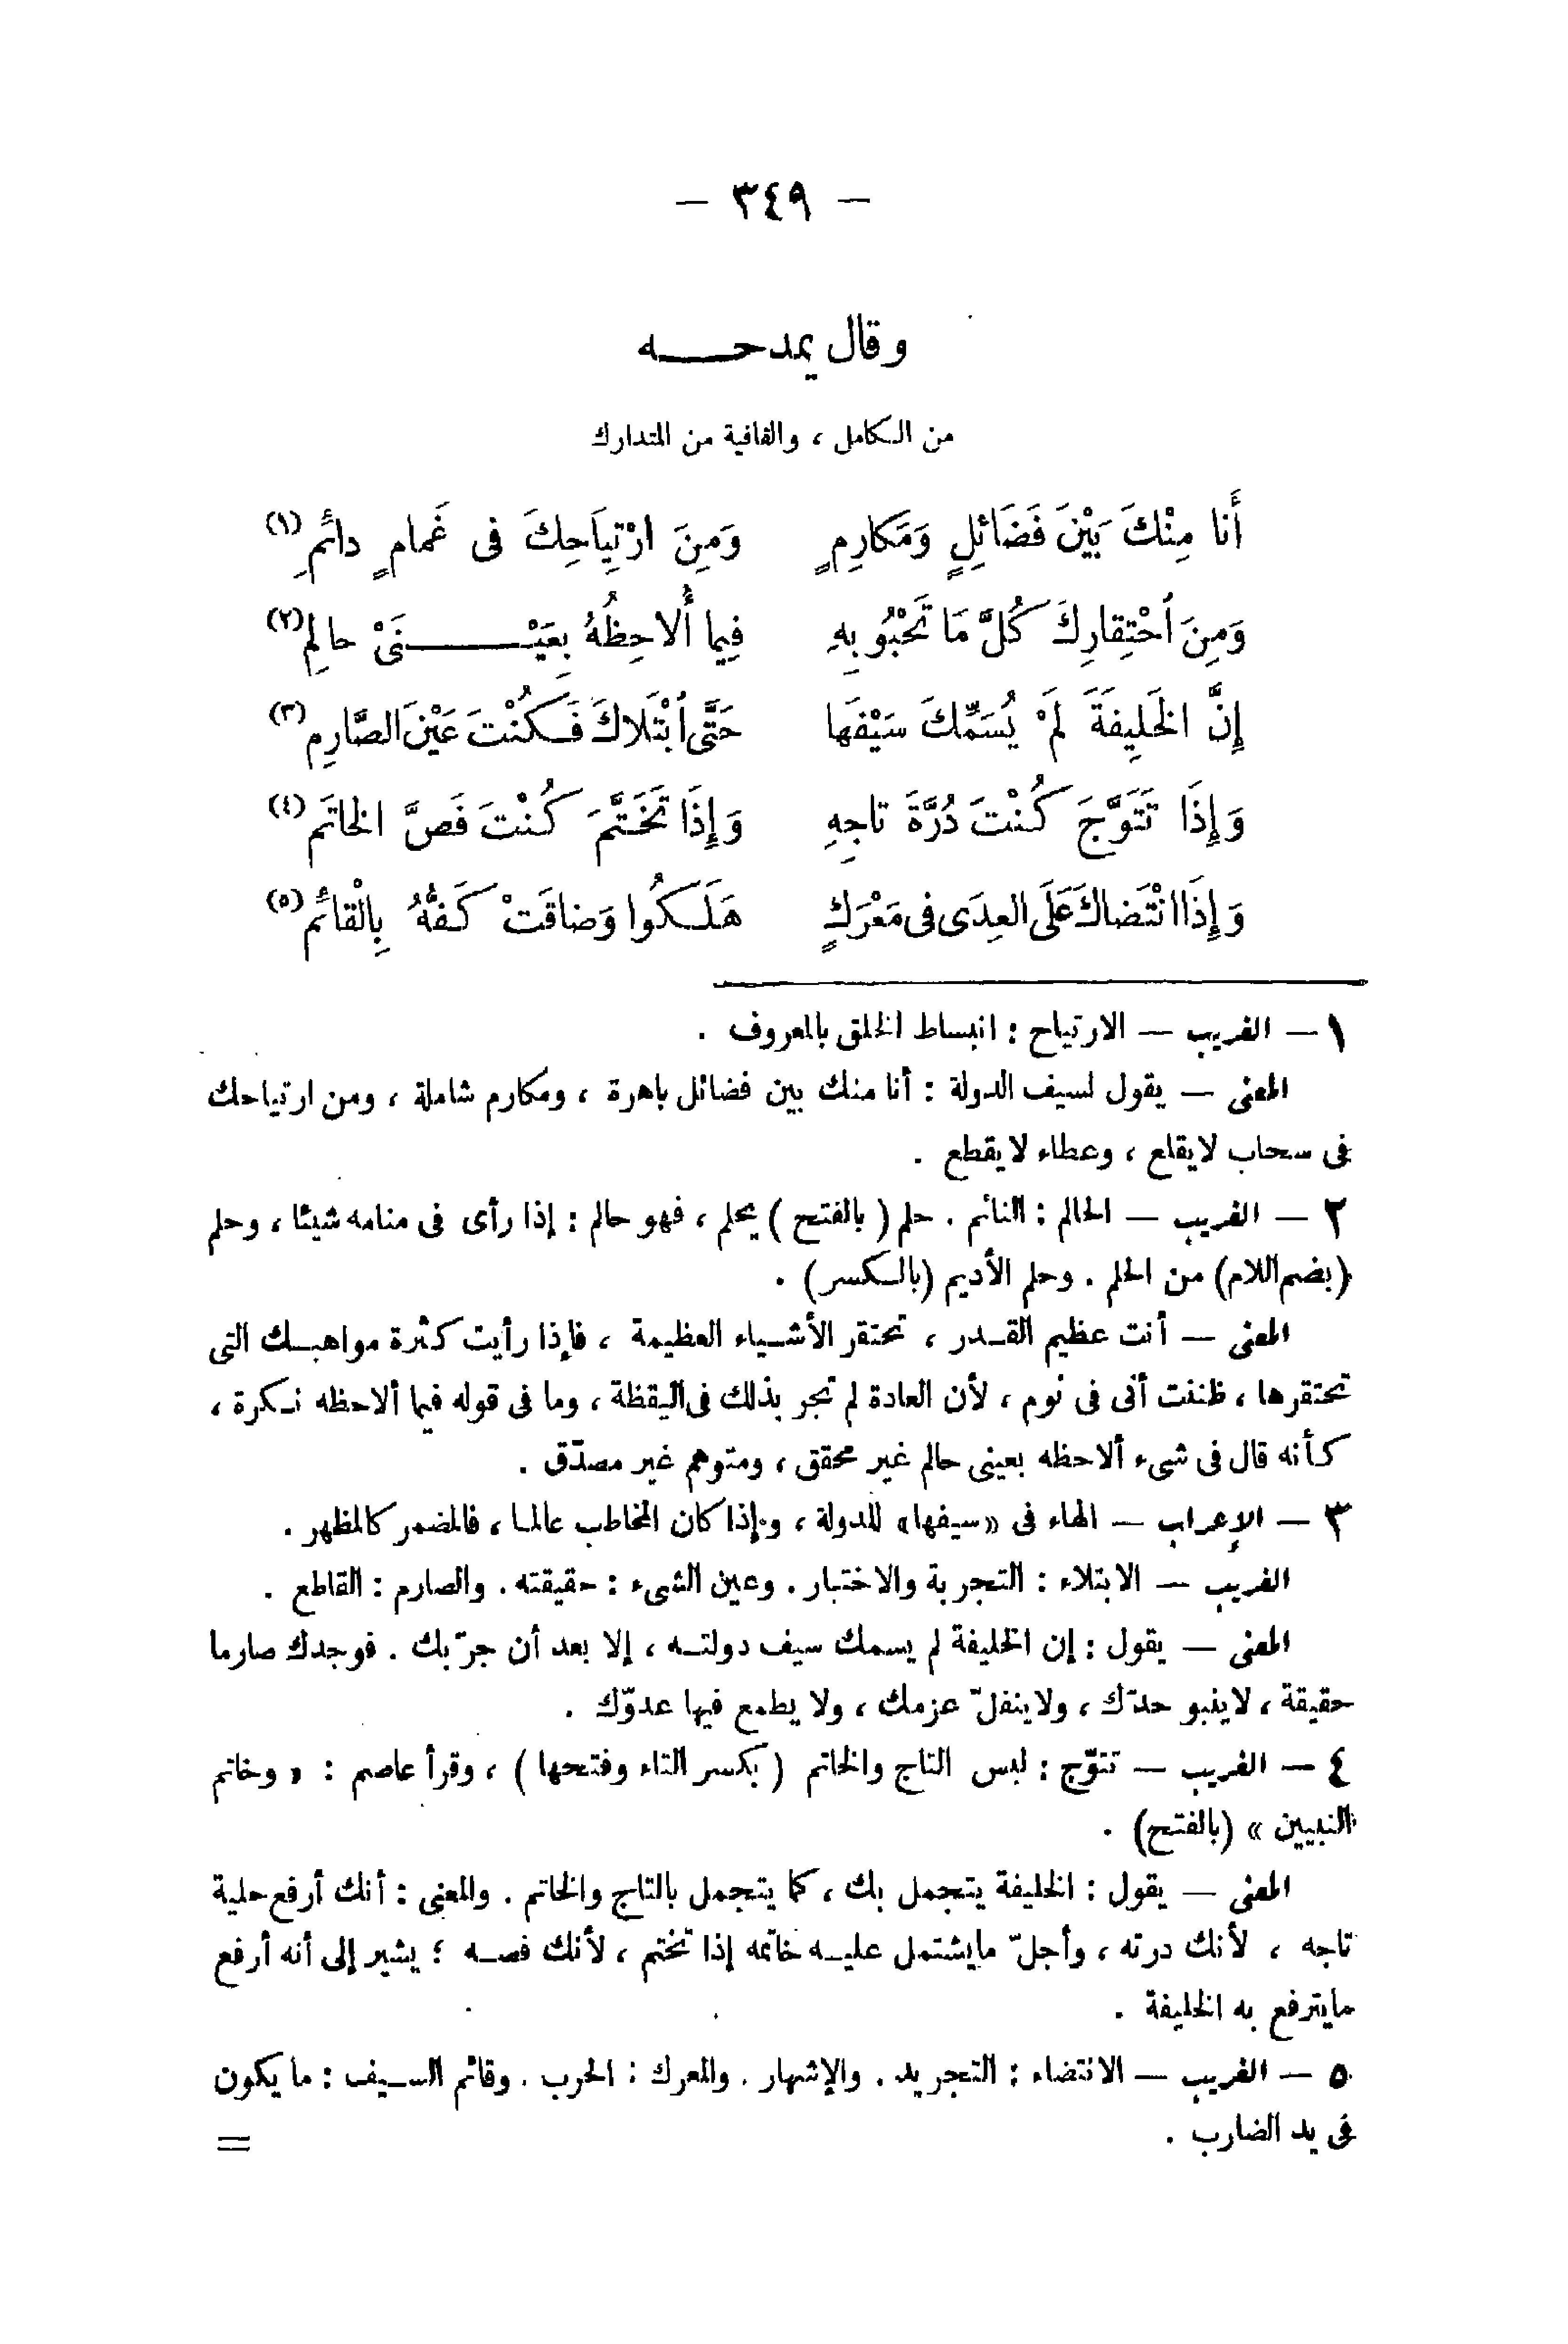 — ٣٤٩ —
وقال يمدحـــه
من الكامل ، والقافية من المتدارك
أَنا مِنْكَ بَيْنَ فَضَائِلٍ وَمَكارِمٍ وَمِنَ ارْتِيَاحِكَ فى غَمامٍ دائِمِ (١)
وَمِنَ ٱحْتِقارِكَ كُلَّ مَا تَحْبُو بِهِ فِيما أُلاحِظُهُ بِعَيْـــنَىْ حالِمِ (٢)
إِنَّ الخَلِيفَةَ لَمْ يُسَمِّكَ سَيْفَها حَتَّى ٱبْتَلاكَ فَكُنْتَ عَيْنَ الصَّارِمِ (٣)
وَإِذَا تَتَوَّجَ كُنْتَ دُرَّةَ تاجِهِ وَإِذَا تَخَتَّمَ كُنْتَ فَصَّ الخاتَمِ (٤)
وَإِذَا انْتَضاكَ عَلَى العِدَى فى مَعْرَكٍ هَلَكُوا وَضاقَتْ كَفُّهُ بِالْقائِمِ (٥)
١ — الغريب — الارتياح : انبساط الخلق بالمعروف .
المعنى — يقول لسيف الدولة : أنا منك بين فضائل باهرة ، ومكارم شاملة ، ومن ارتياحك
فى سحاب لايقلع ، وعطاء لايقطع .
٢ — الغريب — الحالم : النائم . حلم ( بالفتح ) يحلم ، فهو حالم : إذا رأى فى منامه شيئا ، وحلم
(بضم اللام) من الحلم . وحلم الأديم (بالكسر) .
المعنى — أنت عظيم القـدر ، تحتقر الأشـياء العظيمة ، فإذا رأيت كثرة مواهبـك التى
تحتقرها ، ظننت أنى فى نوم ، لأن العادة لم تجر بذلك فى اليقظة ، وما فى قوله فيما ألاحظه نـكرة ،
كأنه قال فى شىء ألاحظه بعينى حالم غير محقق ، ومتوهم غير مصدّق .
٣ — الإعراب — الهاء فى «سيفها» للدولة ، وإذا كان المخاطب عالما ، فالمضمر كالمظهر .
الغريب — الابتلاء : التجربة والاختبار . وعين الشىء : حقيقته . والصارم : القاطع .
المعنى — يقول : إن الخليفة لم يسمك سيف دولتـه ، إلا بعد أن جرّبك . فوجدك صارما
حقيقة ، لاينبو حدّك ، ولاينفلّ عزمك ، ولا يطمع فيها عدوّك .
٤ — الغريب — تتوّج : لبس التاج والخاتم ( بكسر التاء وفتحها ) ، وقرأ عاصم : « وخاتم
النبيين » (بالفتح) .
المعنى — يقول : الخليفة يتجمل بك ، كما يتجمل بالتاج والخاتم . والمعنى : أنك أرفع حلية
تاجه ، لأنك درته ، وأجلّ مايشتمل عليـه خاتمه إذا تختم ، لأنك فصـه ؛ يشير إلى أنه أرفع
مايترفع به الخليفة .
٥ — الغريب — الانتضاء : التجريد . والإشهار . والمعرك : الحرب . وقائم السـيف : ما يكون
فى يد الضارب .
=